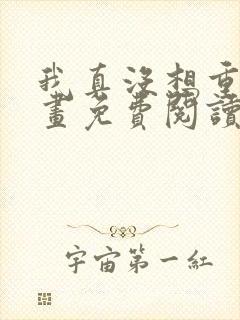 我真没想重
畫免費閱讀
宇宙第一紅